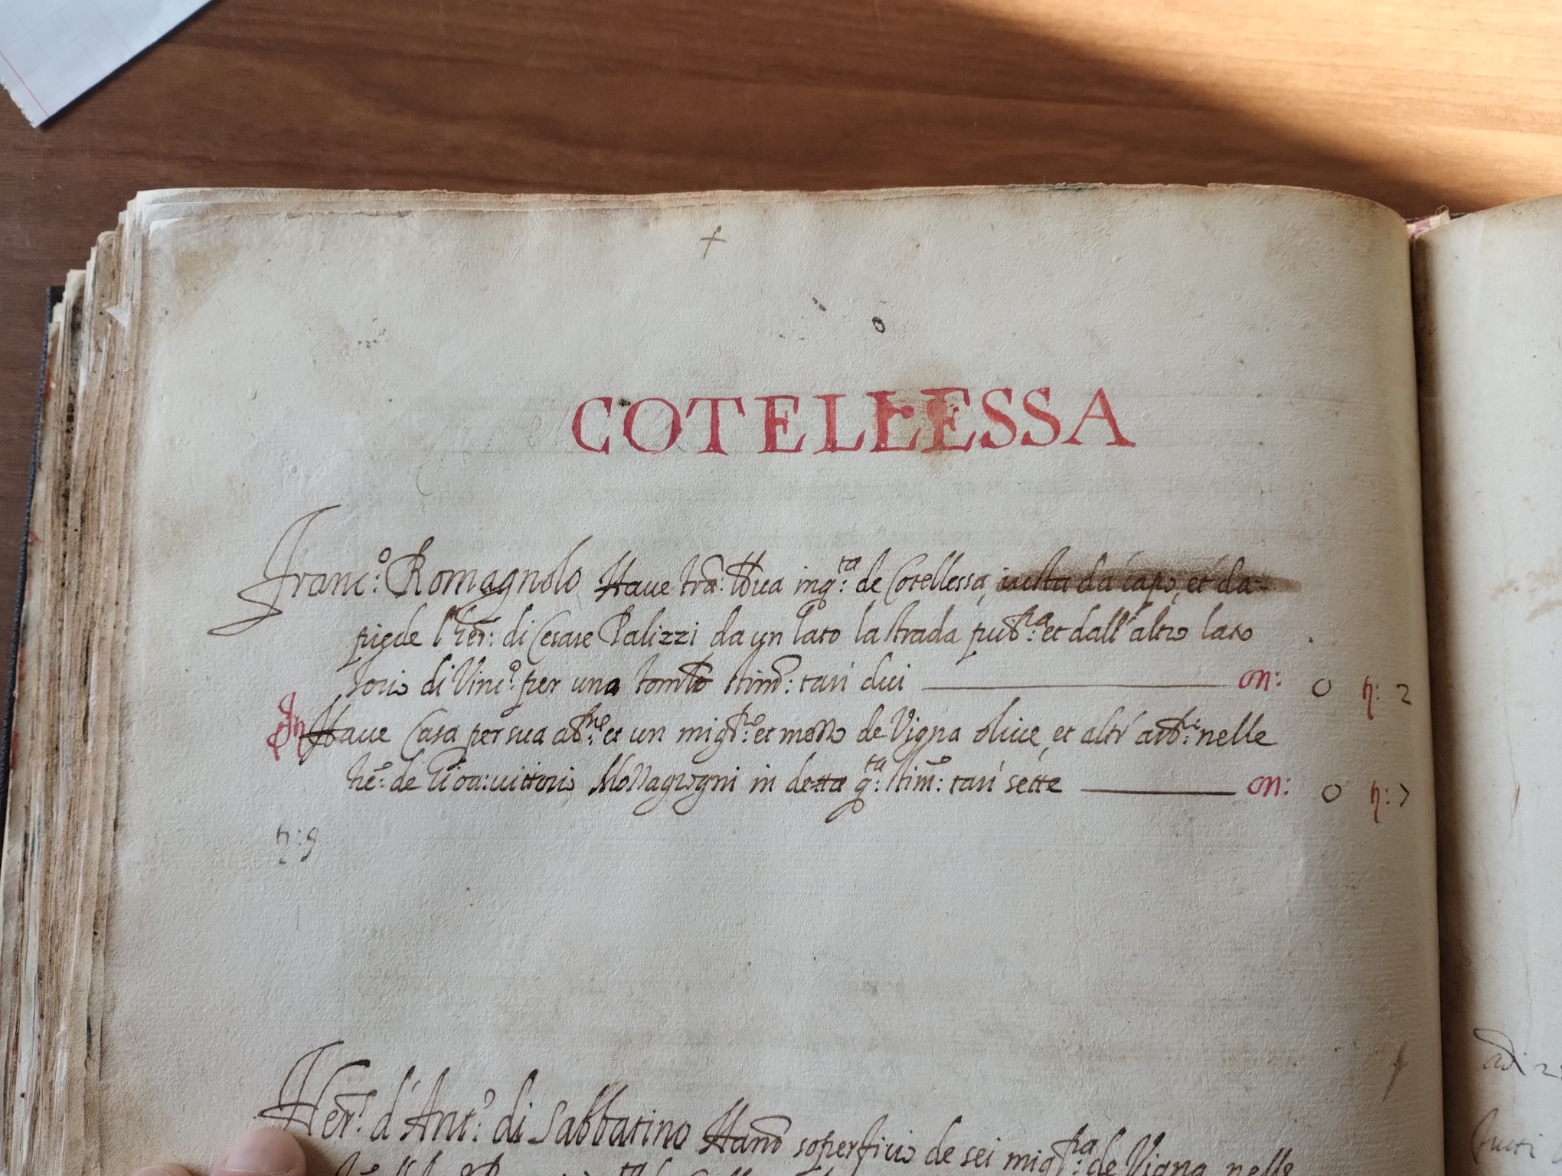 +
COTELLESSA
Franc.º Romagnolo Have trã: soda in q.ta: de Cotellessa, iusta da capo, et da
piede l'her: di Cesare Palizzi da un lato la strada pub.ca: et dall'altro lato
di Vinc.º per una stim.º: tarì dui on: 0 tt: 2
In Have Casa per sua ab.ne: et un migl.ro: et mezzo de Vigna olive, et altri arb.ri: nelle
he: de Gioa: vittorio Mozzagrogni in detta q.ta: stim.º: tarì sette on: 0 tt: 7
tt: 9
Her: d'Ant.º: di Sabbatino Hano soperficio de sei migl.ra: de Vigna nelle
adi 2